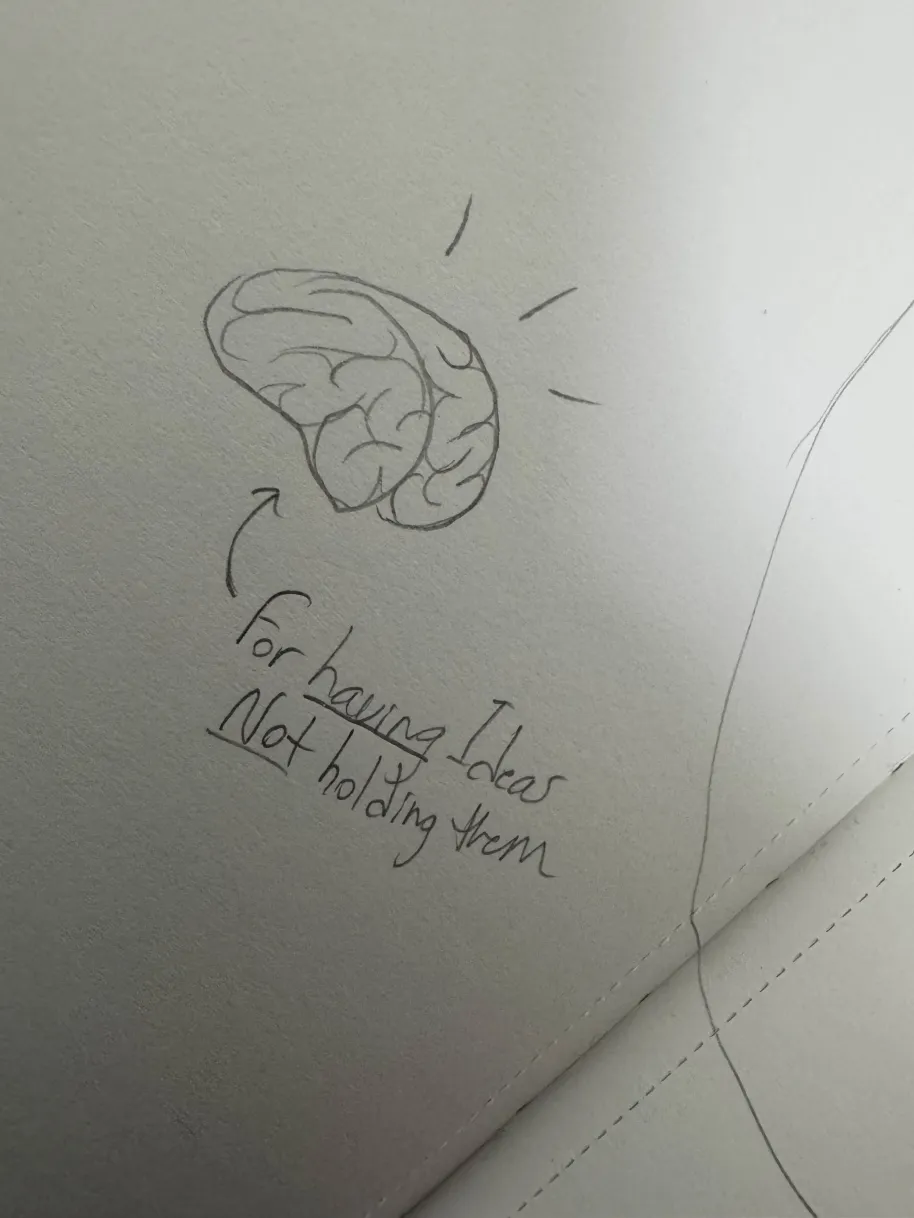 For having Ideas
Not holding them